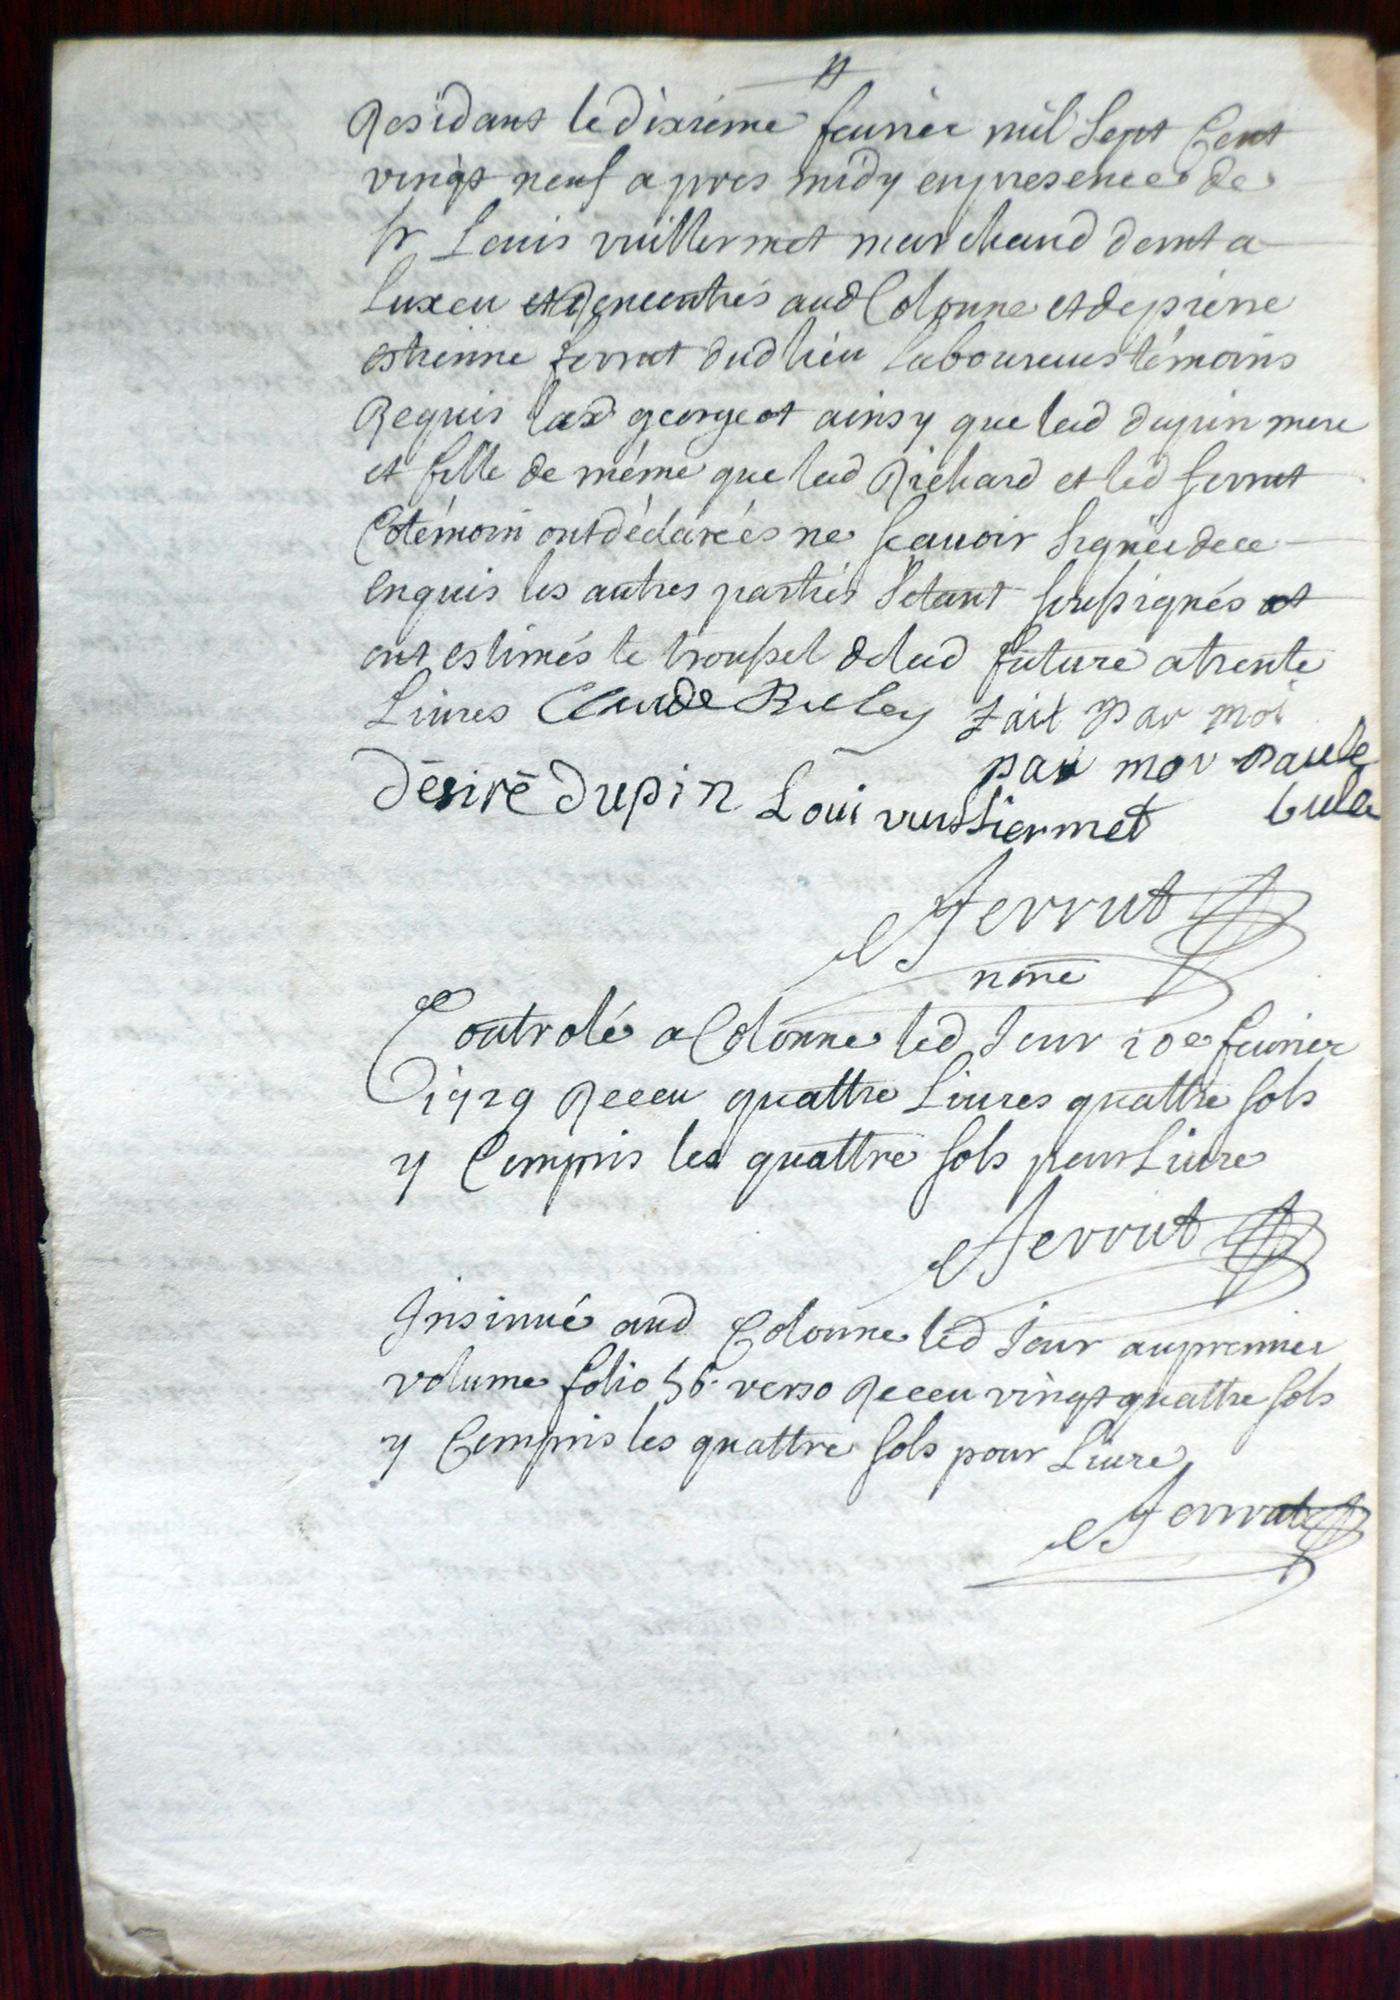 Residant le dixiéme feurier mil Sept Cent
vingt neuf apres midy en presence de
sr Louis vuillermet marchand demt a
Luxeu rencontrés aud Colonne et de pierre
estienne ferrut dud lieu laboureurs témoins
Requis lad georgeot ainsy que lad dupin mere
et fille de méme que led Richard et led ferrut
Cotémoin ont déclarés ne scauoir signer de ce
enquis les autres parties s'etant soussignés et
ont estimés le troussel de lad future a trente
Liures Claude fait par moi
par moy
Désiré Dupin Loui vuilliermet
ferrut
nore
Controlé a Colonne led Jour 10e feurier
1729 Receu quattre Liures quattre sols
y Compris les quattre sols pour Liure
ferrut
Insinué aud Colonne led Jour au premier
volume folio 56 verso Receu vingt quattre sols
y Compris les quattre sols pour Liure
ferrut